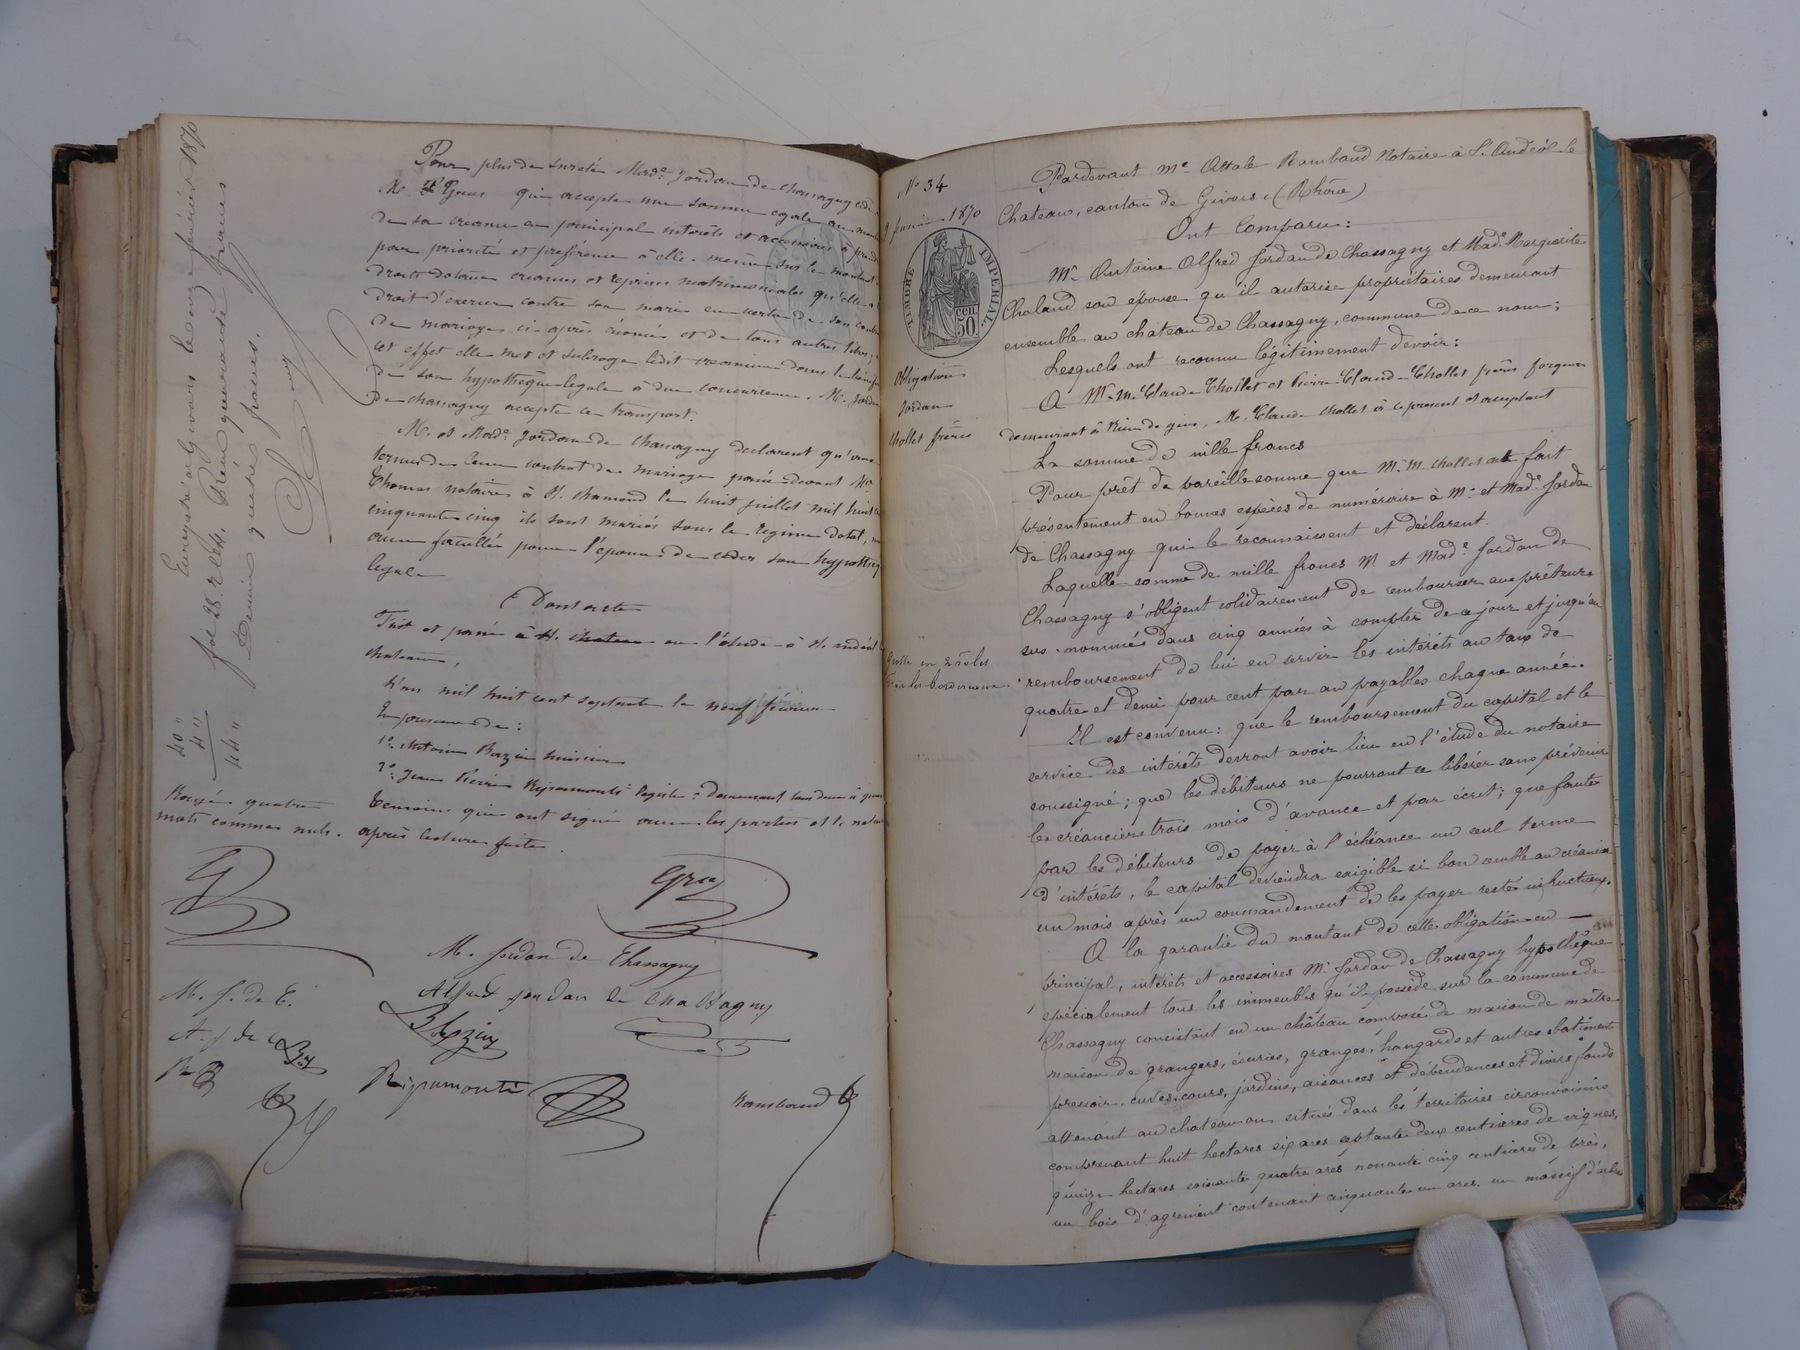 Pour plus de sureté Made Jordan de Chassagny cède
M. Gous qui accepte une somme egale au
de sa creance en principal interets et accessoires à
par priorité et préférence à elle-même sur le montant
Droits dotaux creances et reprises matrimoniales qu'elle a
Droit d'exercer contre son mari en vertu de son
de mariage ci-après énoncé et de tous autres titres,
cet effet elle met et subroge ledit dans le
de son hypothèque légale à due concurrence. M. Jordan
de chassagny accepte ce transport.
M. et Made Jordan de Chassagny declarent qu'aux
termes de leur contrat de mariage passé devant Me
Thomas notaire à St. chamond le huit juillet mil huit
cinquante cinq ils sont mariés sous le régime dotal,
avec faculté pour l'épouse de céder son hypothèque
légale
Dont acte
Fait et passé à St. chateau en l'étude à St. andéol
chateau,
L'an mil huit cent septante le neuf février
En presence de:
1° Antoine Bazin
2° Jean Pierre Ripamonti demeurant tous deux à
Temoins qui ont signé avec les parties et le
après lecture faite.
Enregistré à Givors le onze février 1870
fol 28. r. Reçu quarante francs
Décime quatre francs.
40"
4"
44"
Rayés quatre
mots comme nuls.
M. Jordan de Chassagny
Alfred jordan de Chassagny
M. J. de C.
A. j de c
Bazin
Ripamonti
Rambaud
N° 34
9 1870
TIMBRE IMPERIAL.
50 CEN
Obligation
Jordan
Chollet frères
Pardevant Me Attale Rambaud Notaire à St. Andéol-le
Chateau, canton de Givors, (Rhône)
Ont Comparu:
Mr Antoine Alfred Jordan de Chassagny et Made Marguerite
Chaland son épouse qu'il autorise propriétaires demeurant
ensemble au chateau de Chassagny, commune de ce nom;
Lesquels ont reconnu légitimement devoir:
A Mr. M. Claude Chollet et Pierre-Claude-Chollet frères forgeurs
demeurant à Rive de gier, M. Claude Chollet à ce présent et acceptant
La somme de mille francs
Pour prêt de pareille somme que Mr. M. Chollet ont fait
présentement en bonnes espèces de numéraire à Mr et Made Jordan
de Chassagny qui le reconnaissent et déclarent.
Laquelle somme de mille francs M et Made Jordan de
Chassagny s'obligent solidairement de rembourser aux prêteurs
sus-nommés dans cinq années à compter de ce jour et jusqu'au
remboursement de lui en servir les intérêts au taux de
quatre et demi pour cent par an payables chaque année.
Il est convenu: que le remboursement du capital et le
service des intérêts devront avoir lieu en l'étude du notaire
soussigné; que les débiteurs ne pourront se libérer sans prévenir
les créanciers trois mois d'avance et par écrit; que faute
par les débiteurs de payer à l'échéance un seul terme
d'intérêts, le capital deviendra exigible si bon semble au créancier
un mois après un commandement de les payer resté infructueux.
A la garantie du montant de cette obligation en
principal, intérêts et accessoires Mr Jordan de Chassagny hypothèque
spécialement tous les immeubles qu'il possède sur la commune de
Chassagny consistant en un château composé de maison de maître
maison de grangers, écuries, granges, hangards et autres batiments
pressoir, cuves, cours, jardins, aisances et dépendances et divers fonds
attenant au chateau ou situés dans les territoires circonvoisins
comprenant huit hectares six ares septante deux centiares de vignes,
quinze hectares soixante quatre ares nonante cinq centiares de prés,
un bois d'agrément contenant cinquante un ares, un massif d'arbres